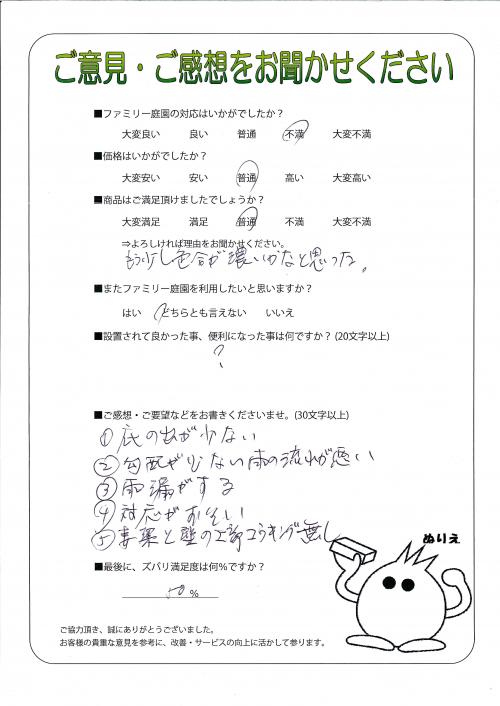 ご意見・ご感想をお聞かせください
■ファミリー庭園の対応はいかがでしたか？
大変良い 良い 普通 不満 大変不満
■価格はいかがでしたか？
大変安い 安い 普通 高い 大変高い
■商品はご満足頂けましたでしょうか？
大変満足 満足 普通 不満 大変不満
⇒よろしければ理由をお聞かせください。
もう少し色合が濃いかなと思った。
■またファミリー庭園を利用したいと思いますか？
はい どちらとも言えない いいえ
■設置されて良かった事、便利になった事は何ですか？ (20文字以上)
?
■ご感想・ご要望などをお書きくださいませ。(30文字以上)
① 庇の出が少ない
② 勾配が少ない雨の流れが悪い
③ 雨漏がする
④ 対応がおそい
⑤ と壁の上部コーキング無し
ぬりえ
■最後に、ズバリ満足度は何％ですか？
50 %
ご協力頂き、誠にありがとうございました。
お客様の貴重な意見を参考に、改善・サービスの向上に活かして参ります。